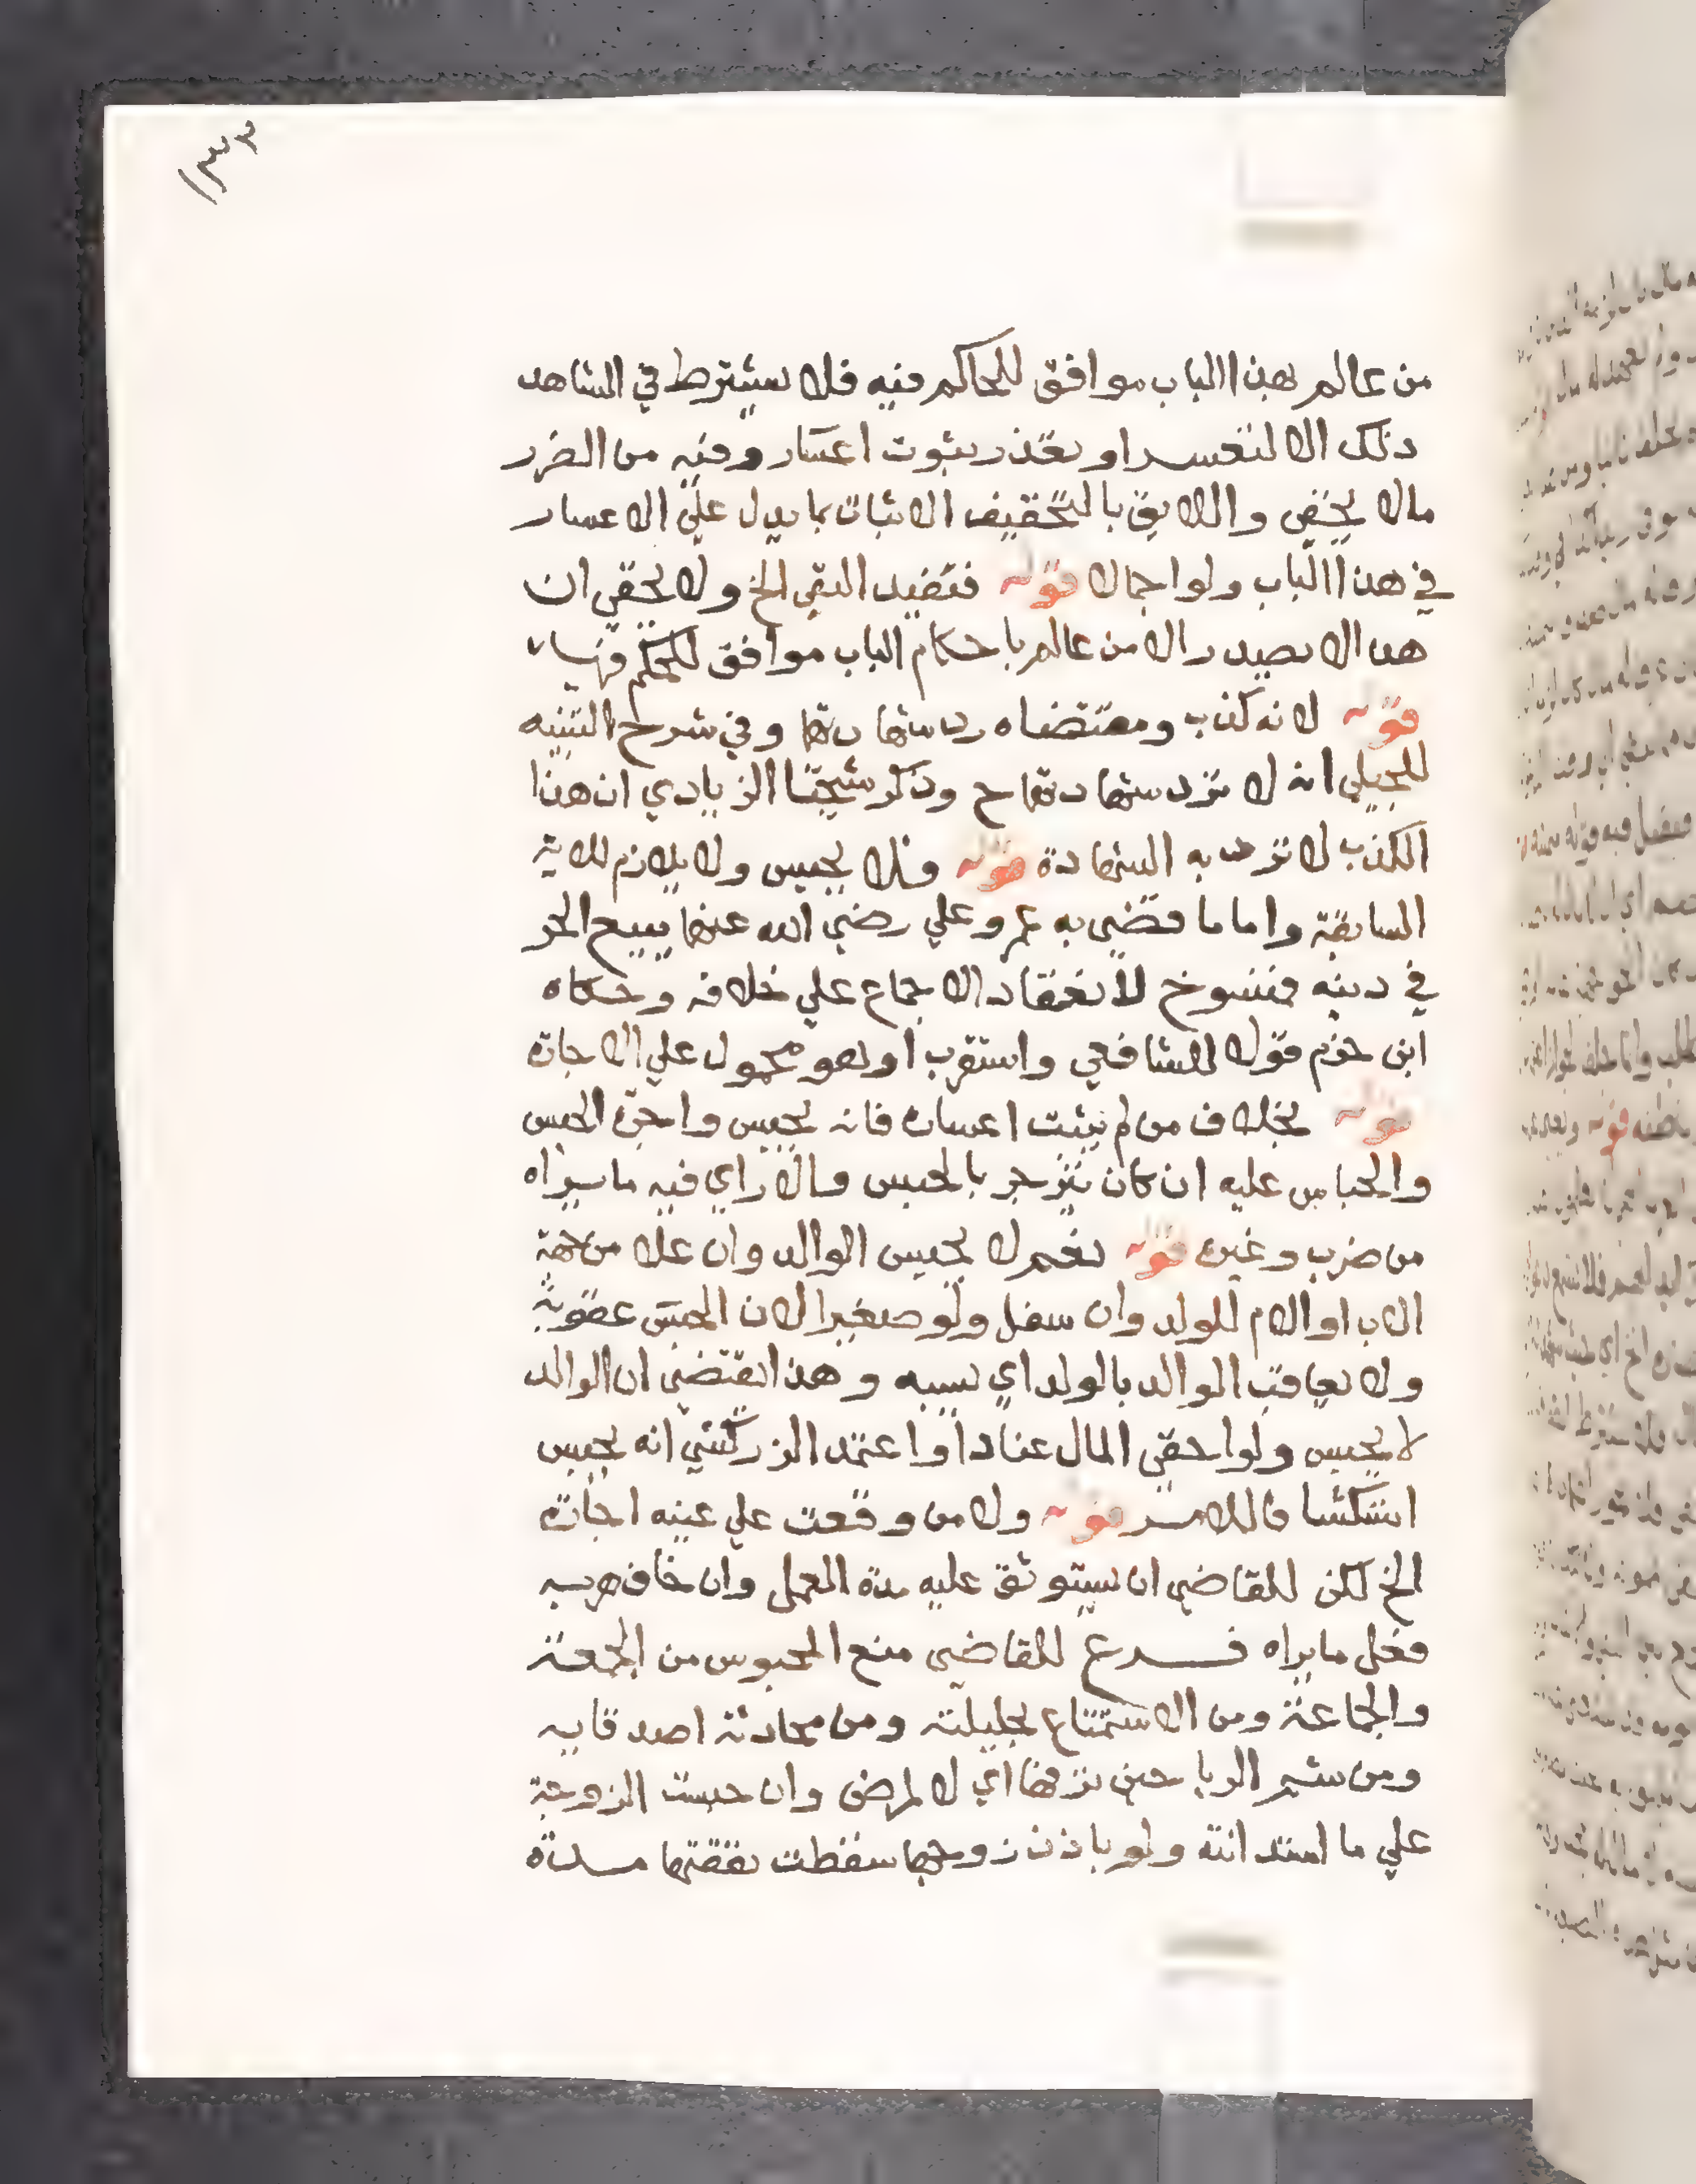 ١٣٢
من عالم بهذا الباب موافق للحاكم فيه فلا يشترط في الشاهد
ذلك الا لتعسر او تعذر ثبوت اعسار وفيه من الضرر
مالا يخفى واللايق بالتخفيف الاثبات بما يدل علي الاعسار
في هذا الباب ولو اجمالا قوله فتقييد النفي الخ ولا يخفى ان
هذا لا يصدر الا من عالم باحكام الباب موافق للحكم فيها
قوله لانه كذب ومقتضاه رد شهادتها وفي شرح التنبيه
للجيلي انه لا ترد شهادتهما ح وذكر شيخنا الزيادي ان هذا
الكذب لا ترد به الشهادة قوله فلا يحبس ولا يلازم للاية
السابقة واما ما قضى به عمر وعلي رضي الله عنهما ببيع الحر
في دينه فمنسوخ لانعقاد الاجماع علي خلافه وحكاه
ابن حزم قولا للشافعي واستغرب او هو محمول علي الاجارة
قوله بخلاف من لم يثبت اعساره فانه يحبس واجرة الحبس
والحباس عليه ان كان ينزجر بالحبس والا راي فيه ما يراه
من ضرب وغيره قوله نعم لا يحبس الوالد وان علا من جهة
الاب او الام للولد وان سفل ولو صغيرا لان الحبس عقوبة
ولا يعاقب الوالد بالولد اي بسببه وهذا يقتضي ان الوالد
لا يحبس ولو اخفى المال عنادا واعتمد الزركشي انه يحبس
استكشافا للامر قوله ولا من وقعت علي عينه اجارة
الخ لكن للقاضي ان يستوثق عليه مدة العمل وان خاف هربه
فعل ما يراه فرع للقاضي منع المحبوس من الجمعة
والجماعة ومن الاستمتاع بحليلته ومن محادثة اصدقايه
ومن شم الرياحين ترفها اي لا لمرض وان حبست الزوجة
علي ما استدانته ولو باذن زوجها سقطت نفقتها مدة